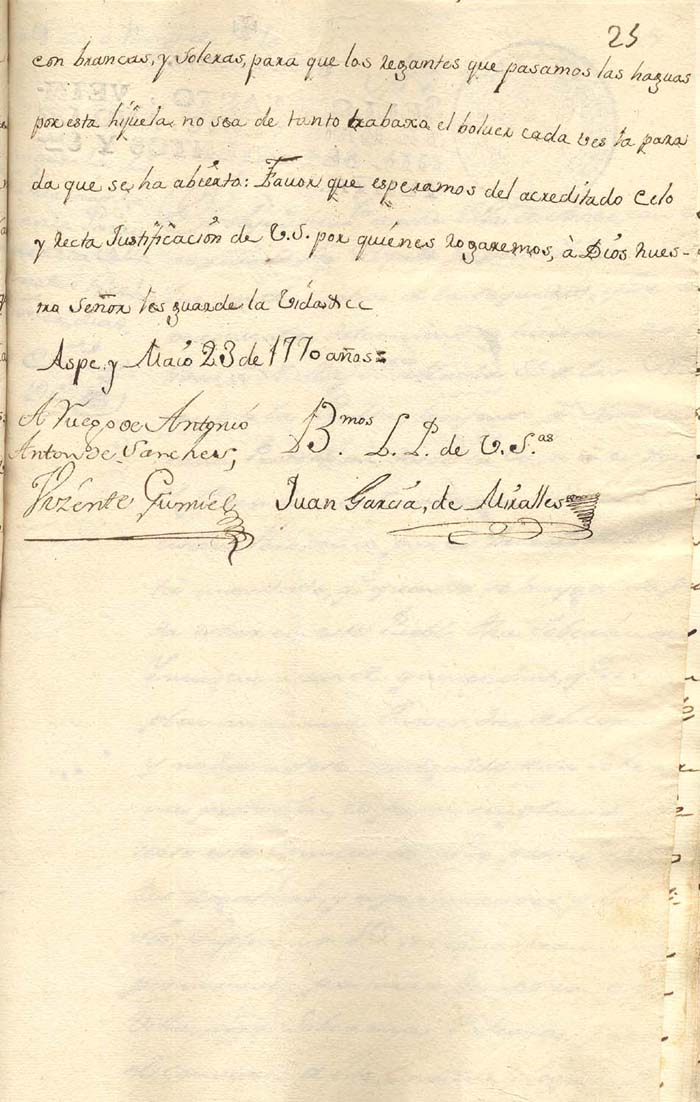 25
con brancas, y Soleras, para que los regantes que pasamos las haguas
por esta hijüela no sea de tanto trabaxa el boluer cada ves la para
da que se ha abierto: Fauor que esperamos del acreditado Celo
y recta Justificación de V.S. por quiénes rogaremos, à Dios nues-
tro Señor les guarde la Vida &cc
Aspe, y Maio 23 de 1770 años=
A ruego de Antonio
Anton de Sanches,
Vizente Gumiel
B.mos L. P. de V.S.as
Juan García, de Miralles